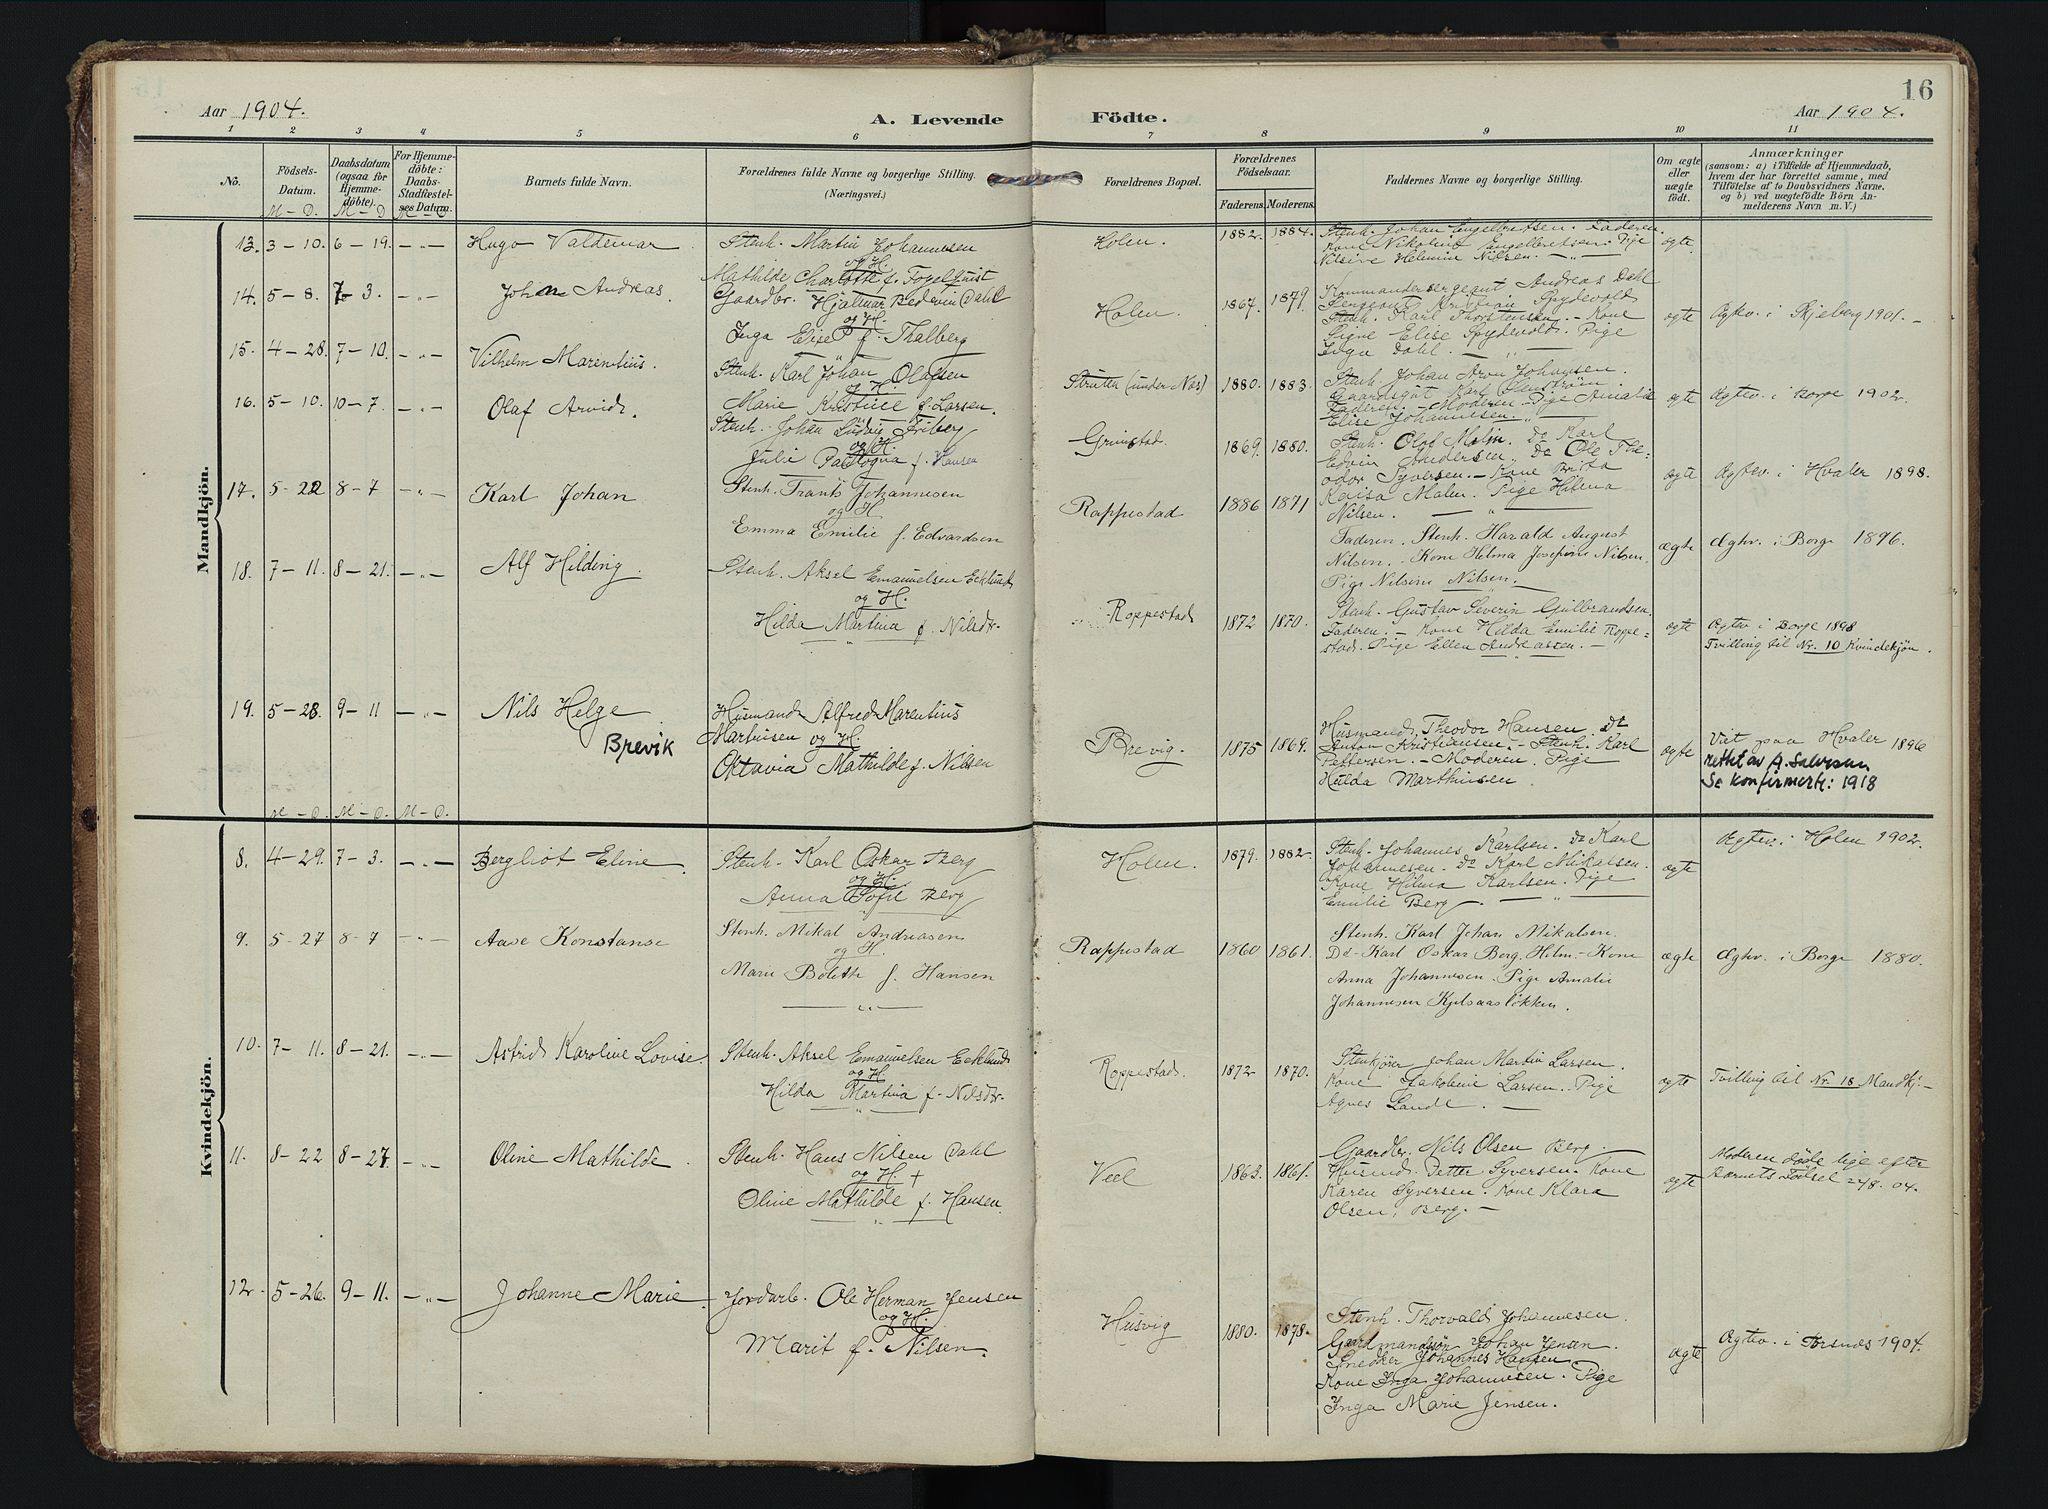 Aar 1904.
A. Levende Födte.
16
Aar 1904.
1 2 3 4 5 6 7 8 9 10 11
No.
Födsels-
Datum.
Daabsdatum
(ogsaa for
Hjemme-
döbte).
For Hjemme-
döbte:
Daabs-
Stadfæstel-
ses Datum.
Barnets fulde Navn.
Forældrenes fulde Navne og borgerlige Stilling.
(Næringsvei.)
Forældrenes Bopæl.
Forældrenes
Födselsaar.
Faderens. Moderens.
Faddernes Navne og borgerlige Stilling.
Om ægte
eller
uægte
födt.
Anmærkninger
(saasom: a) i Tilfælde af Hjemmedaab,
hvem der har forrettet samme, med
Tilföielse af to Daabsvidners Navne.
og b) ved uægtefödte Börn An-
melderens Navn m. V.)
M – D. M – D M – D
Mandkjön.
13. 3 – 10. 6 – 19. – „ – Hugo Valdemar. Stenh. Martin Johannesen
og H.
Mathilde Charlotte f. Fogelquist
Holen. 1882. 1884. Stenh. Johan Engelbretsen. Faderen.
Kone Nikoline Engelbretsen. Pige
Nilsine Helmine Nilsen. – „ –
ægte
14. 5 – 8. 7 – 3. – „ – Johan Andreas. Gaardbr. Hjalmar Dahl
og H.
Inga Elise f. Thalberg
Holen. 1867. 1879. Kommandersergeant Andreas Dahl
Sergeant Kristian Spydevold
Stenh. Karl Thorstensen. – Kone
Signe Elise Spydevold. Pige
Inga Dahl. – „ –
ægte Ægtev. i Skjeberg 1901. –
15. 4 – 28. 7 – 10. – „ – Vilhelm Marentius. Stenh. Karl Johan Olafsen
og H.
Marie Kristine f. Larsen.
Struten (under Næs) 1880. 1883. Stenh. Johan Aron Johansen.
Gaardsgut Karl Olenström
Faderen. – Moderen. – Pige Amalie
Elise Johannesen. – „ –
ægte Ægtev. i Borge 1902.
16. 5 – 10. 10 – 7. – „ – Olaf Arvid. Stenh. Johan Ludvig Friberg
og H.
Julie f. Hansen
Grimstad. 1869. 1880. Stenh. Olaf Malin. Do Karl
Edvin Andersen. Do Ole The-
odor Syversen. – Kone Brita
Kaisa Malen. Pige Hilma
Nilsen. – „ –
ægte Ægtev. i Hvaler 1898.
17. 5 – 22 8 – 7 – „ – Karl Johan Stenh. Frants Johannesen
og H.
Emma Emilie f. Edvardsen
Rappestad 1886 1871 Faderen. Stenh. Harald August
Nilsen. – Kone Helma Josefine Nilsen.
Pige Nilsine Nilsen. –
ægte Ægtv. i Borge 1896.
18. 7 – 11. 8 – 21. – „ – Alf Hilding. Stenh. Aksel Emanuelsen Ecklund
og H.
Hilda Martina f. Nilsdtr.
„
Roppestad 1872 1870. Stenh. Gustav Severin Gulbrandsen.
Faderen. – Kone Hilda Emilie Roppe-
stad. Pige Ellen Andreassen. –
ægte Ægtev i Borge 1898
Tvilling til Nr. 10 Kvindekjön.
19. 5 – 28. 9 – 11 – „ – Nils Helge
Brevik
Husmand Alfred Marentius
Martinsen og H.
Oktavia Mathilde f. Nilsen
Brevig. 1875 1869. Husmand Theodor Hansen. Do
Anton Kristiansen. – Stenh. Karl
Pettersen. – Moderen. Pige
Hulda Marthinsen.
ægte Viet paa Hvaler 1896
rettet av A. Salvesen
Se konfirmerte: 1918
M – D. M – D. M – D.
Kvindekjön.
8. 4 – 29. 7 – 3. – „ – Bergliot Eline. Stenh. Karl Oskar Berg
og H.
Anna Sofie Berg
Holen. 1879. 1882. Stenh. Johannes Karlsen. Do Karl
Johannesen. Do Karl Mikalsen.
Kone Hilma Karlsen. Pige
Emilie Berg. – „ –
ægte Ægtev. i Holen 1902.
9. 5 – 27 8 – 7 – „ – Aase Konstanse Stenh. Mikal Andreasen
og H.
Marie Bolette f. Hansen
– „ –
Rappestad 1860 1861. Stenh. Karl Johan Mikalsen.
Do – Karl Oskar Berg. Holm. – Kone
Anna Johannesen. Pige Amalie
Johannesen Kjelsaaslökken.
ægte Ægtv. i Borge 1880.
10. 7 – 11. 8 – 21. – „ – Astrid Karoline Lovise Stenh. Aksel Emanuelsen Ecklund
og H.
Hilda Martina f. Nilsdtr.
Roppestad. 1872 1870. Stenkjörer Johan Martin Larsen.
Kone Jakobine Larsen. Pige
Agnes Lande. –
ægte Tvilling til Nr. 18 Mandkj: –
11. 8 – 22 8 – 27. – „ – Oline Mathilde. Stenh. Hans Nilsen Dahl
og H. †
Oline Mathilde f. Hansen.
„
Veel 1863. 1861. Gaardbr. Nils Olsen Berg.
Husmd. Petter Syversen. Kone
Karen Syversen. Kone Klara
Olsen, Berg. –
ægte Moderen døde lige efter
Barnets Födsel 22/8. 04.
12. 5 – 26. 9 – 11. – „ – Johanne Marie. Jordarb. Ole Herman Jensen
og H.
Marit f. Nilsen.
Husvig 1880. 1878. Stenh. Thorvald Johannesen.
Gaardmandssön Johan Jensen.
Snedker Johannes Hansen
Kone Inga Johannesen. Pige
Inga Marie Jensen.
ægte Ægtev. i Torsnes 1904.